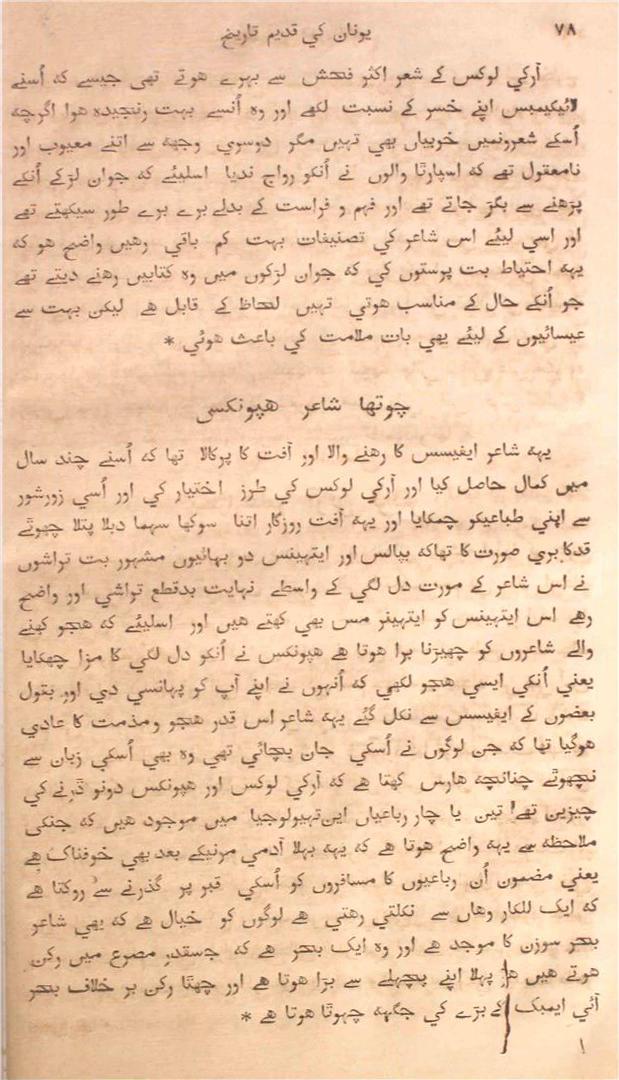 ۷۸ یونان کي قدیم تاریخ
آرکي لوکس کے شعر اکثر فحش سے بہرے هوتے تھی جیسے کہ اُسنے
لائیکیمبس اپنے خسر کے نسبت لکھے اور وہ اُنسے بہت رنجیدہ هوا اگرچہ
اُسکے شعرونمیں خوبیاں بھي تہیں مگر دوسري وجھہ سے اتنے معیوب اور
نامعقول تھے کہ اسپارٹا والوں نے اُنکو رواج ندیا اسلیئے کہ جوان لڑکے اُنکے
پڑھنے سے بگڑ جاتے تھے اور فہم و فراست کے بدلے برے برے طور سیکھتے تھے
اور اسي لیئے اس شاعر کي تصنیفات بہت کم باقي رهیں واضح هو کہ
یہہ احتیاط بت پرستوں کي کہ جوان لڑکوں میں وہ کتابیں رهنے دیتے تھے
جو اُنکے حال کے مناسب هوتي تہیں لحاظ کے قابل هے لیکن بہت سے
عیسائیوں کے لیئے یھي بات ملامت کي باعث هوئي *
چوتھا شاعر هپونکس
یہہ شاعر ایفیسس کا رهنے والا اور آفت کا پرکالا تھا کہ اُسنے چند سال
میں کمال حاصل کیا اور آرکي لوکس کي طرز اختیار کي اور اُسي زورشور
سے اپني طباعیکو چمکایا اور یہہ آفت روزگار اتنا سوکھا سہما دبلا پتلا چھوٹے
قدکا بري صورت کا تھاکہ بپالس اور ایتھینس دو بھائیوں مشہور بت تراشوں
نے اس شاعر کے مورت دل لگي کے واسطے نہایت بدقطع تراشي اور واضح
رهے اس ایتہینس کو ایتہینر مس بھي کھتے هیں اور اسلیئے کہ هجو کہنے
والے شاعروں کو چھیڑنا برا هوتا هے هپونکس نے اُنکو دل لگي کا مزا چھکایا
یعني اُنکي ایسي هجو لکھي کہ اُنہوں نے اپنے آپ کو پھانسي دي اور بقول
بعضوں کے ایفیسس سے نکل گئے یہہ شاعر اس قدر هجو و مذمت کا عادي
هوگیا تھا کہ جن لوگوں نے اُسکي جان بچائي تھي وہ بھي اُسکي زبان سے
نچھوٹے چنانچہ هارس کہتا هے کہ آرکي لوکس اور هپونکس دونو ڈرنے کي
چیزیں تھے تین یا چار رباعیاں این تہیولوجیا میں موجود هیں کہ جنکي
ملاحظہ سے یہہ واضح هوتا هے کہ یہہ بہلا آدمي مرنیکے بعد بھي خوفناک هے
یعني مضمون اُن رباعیوں کا مسافروں کو اُسکي قبر پر گذرنے سے روکتا هے
کہ ایک للکار وهاں سے نکلتي رهتي هے لوگوں کو خیال هے کہ یھي شاعر
بحر سوزن کا موجد هے اور وہ ایک بحر هے کہ جسقدر مصرع میں رکن
هوتے هیں هر پہلا اپنے پچھلے سے بڑا هوتا هے اور چھٹا رکن بر خلاف بحر
آئي ایمبک کے بڑے کي جگہہ چہوٹا هوتا هے *